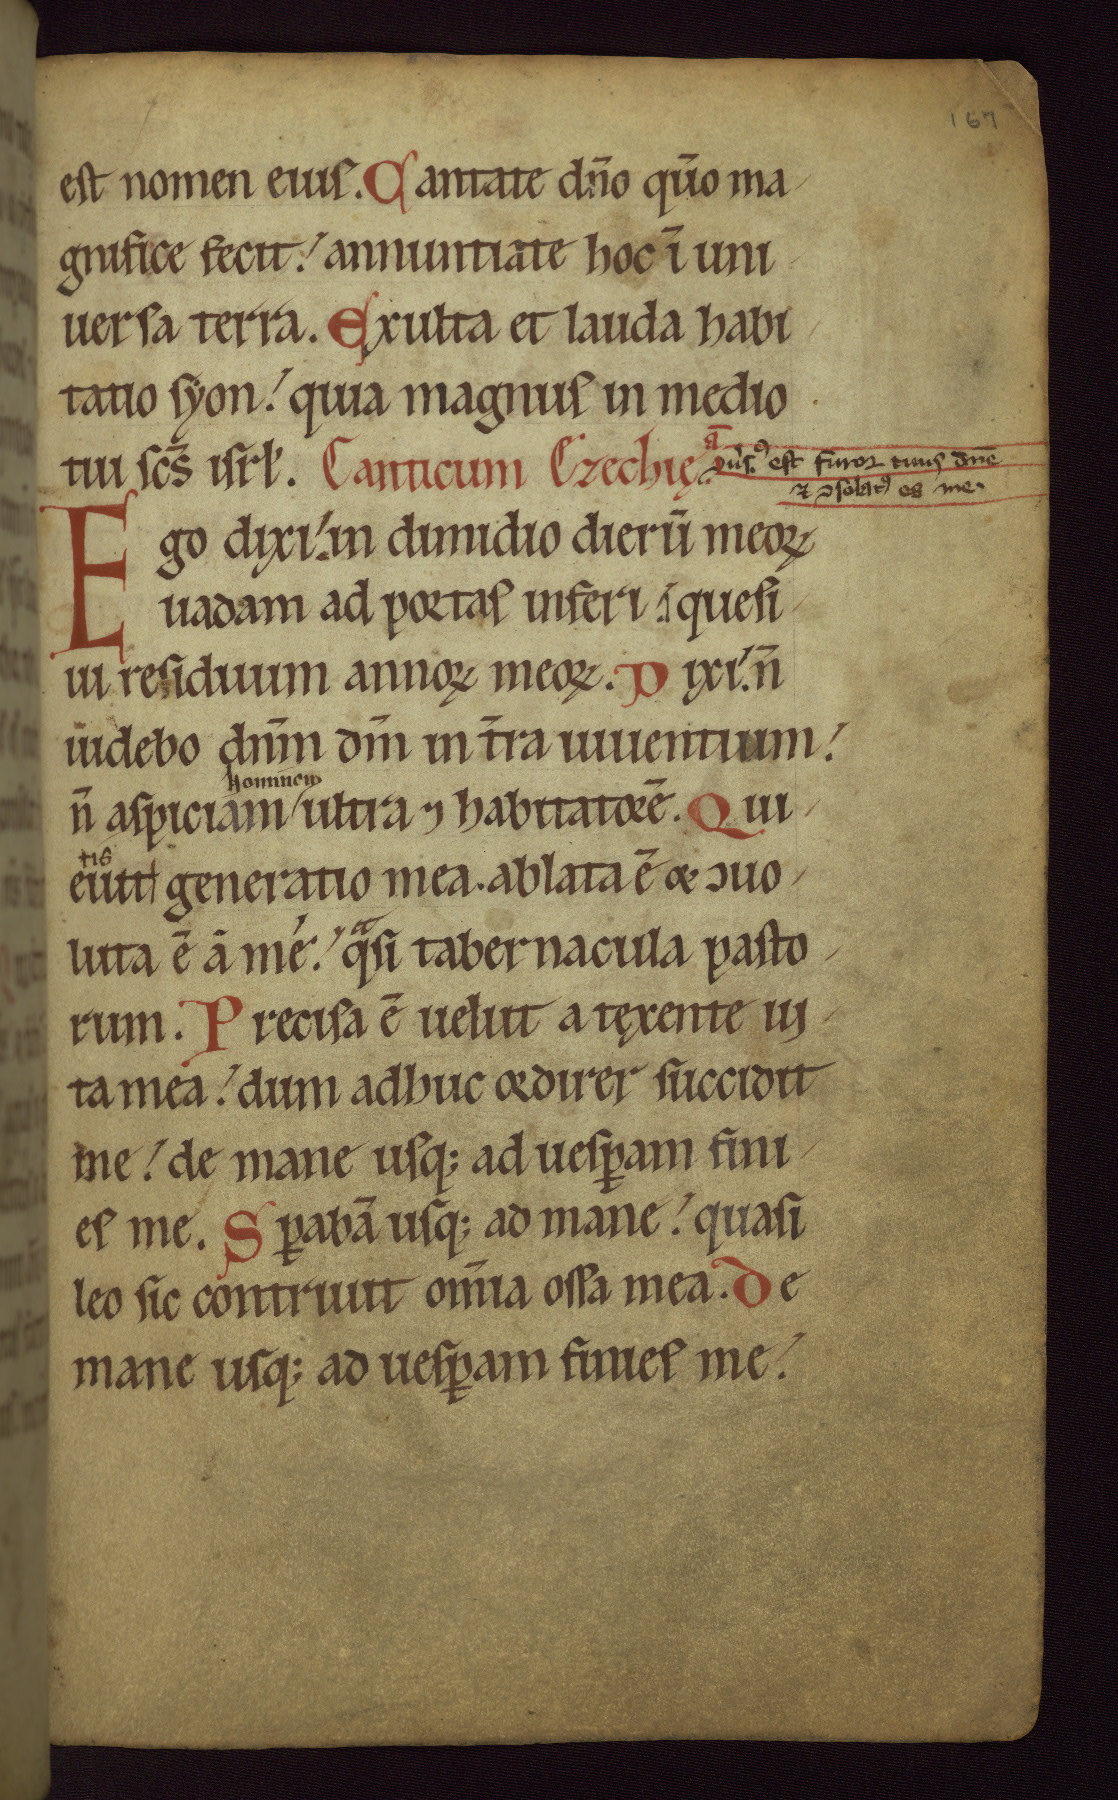 167
est nomen eiuſ. Cantate dn̄o qm̄o ma
gnifice fecit. annuntiate hoc ī uni
uerſa terra. Exulta et lauda habi
tatio ſyon. quia magnuſ in medio
tui ſcs̄ iſrl̕. Canticum Ezechię. a
uſꝰ est furor tuus dn̄e
⁊ ɔſolatꝰ es me.
Ego dixi. in dimidio dierū meoꝝ
uadam ad portaſ inferi. queſi
ui reſiduum annoꝝ meoꝝ. Dixi. n̄
uidebo dnm̄ dm̄ in tr̄a uiuentium.
hominem
n̄ aſpiciam ultra ⁊ habitatorē. Qui
tis
euit generatio mea. ablata ē ⁊ ɔuo
luta ē a me. qͣſi tabernacula paſto
rum. Preciſa ē uelut a tęxente ui
ta mea. dum adhuc ordirer ſuccidit
me. de mane uſq; ad ueſꝑam fini
eſ me. Sꝑabā uſq; ad mane. quaſi
leo ſic contriuit om̄ia oſſa mea. De
mane uſq; ad ueſꝑam finieſ me.